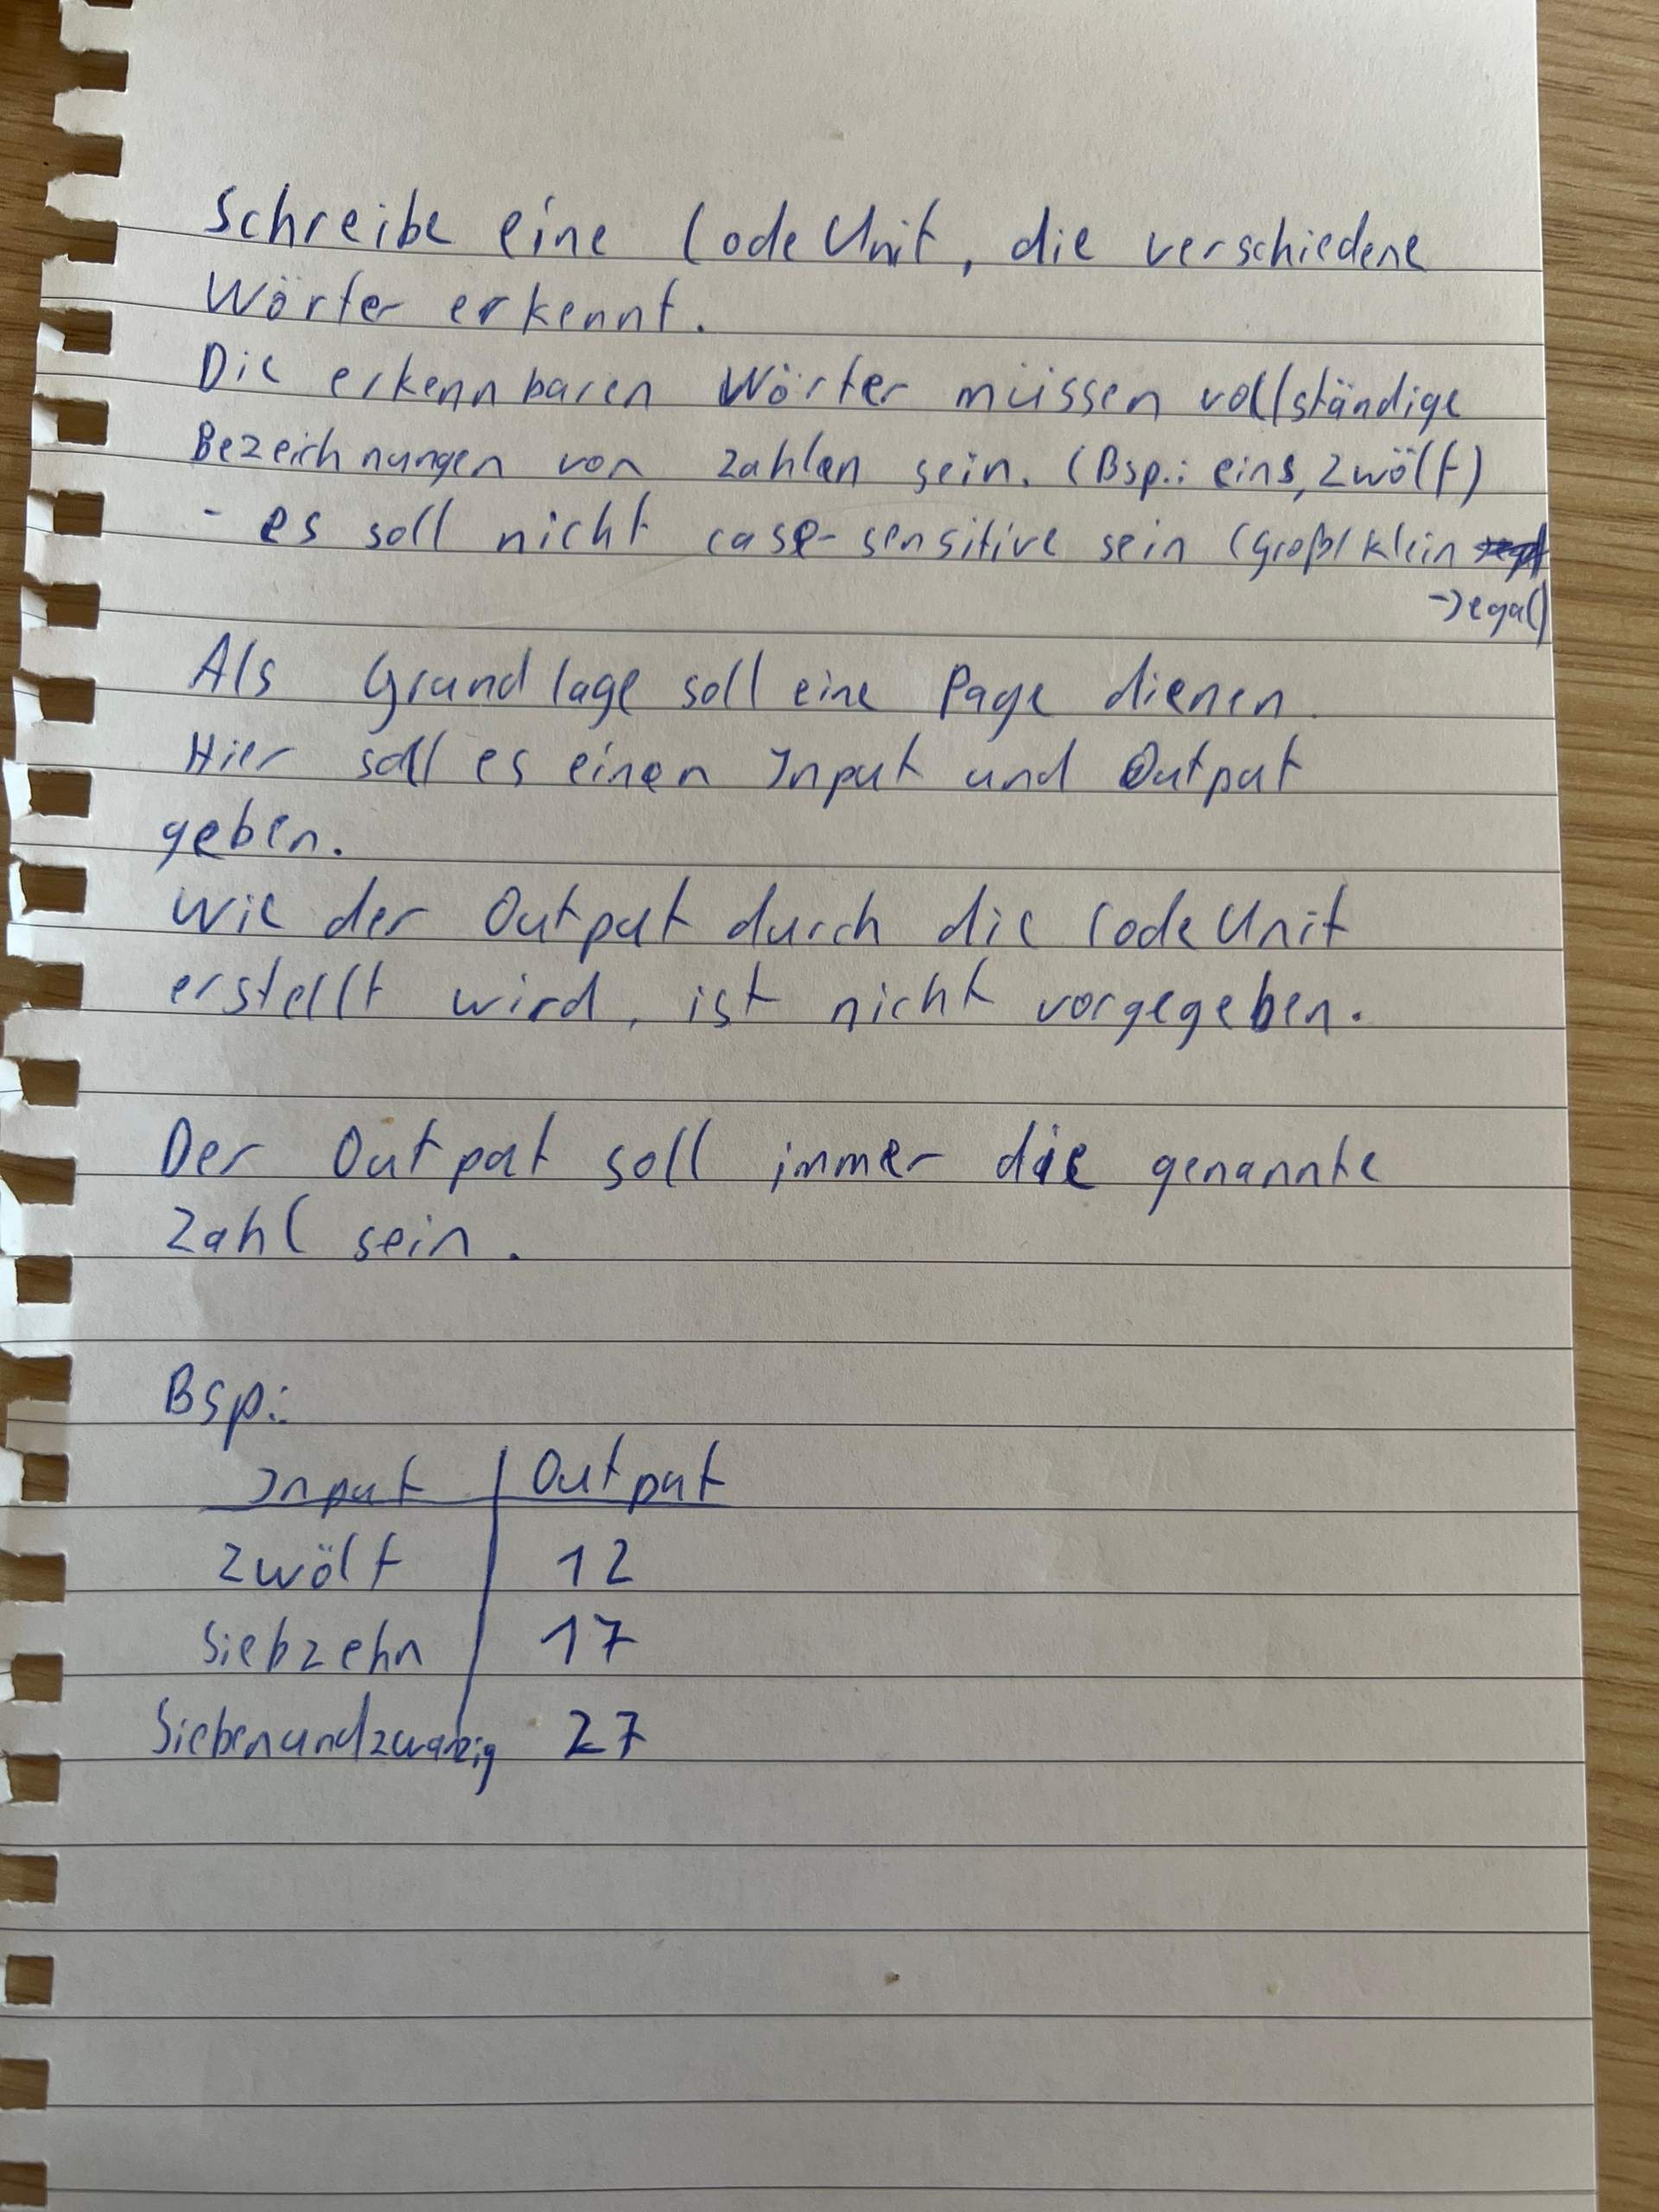 Schreibe eine CodeUnit, die verschiedene
Wörter erkennt.
Die erkennbaren Wörter müssen vollständige
Bezeichnungen von Zahlen sein. (Bsp.: eins, zwölf)
- es soll nicht case-sensitive sein (Groß/klein
-> egal)
Als Grundlage soll eine Page dienen.
Hier soll es einen Input und Output
geben.
Wie der Output durch die CodeUnit
erstellt wird, ist nicht vorgegeben.
Der Output soll immer die genannte
Zahl sein.
Bsp.:
Input | Output
zwölf | 12
siebzehn | 17
Siebenundzwanzig 27